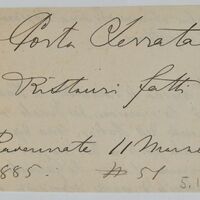 Porta Serrata
Ristauri fatti
Ravennate 11
1885. # 51
5.1